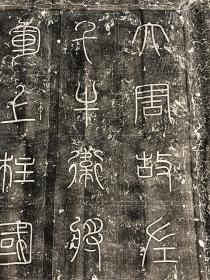 大周故左
千牛衛將
軍上柱國